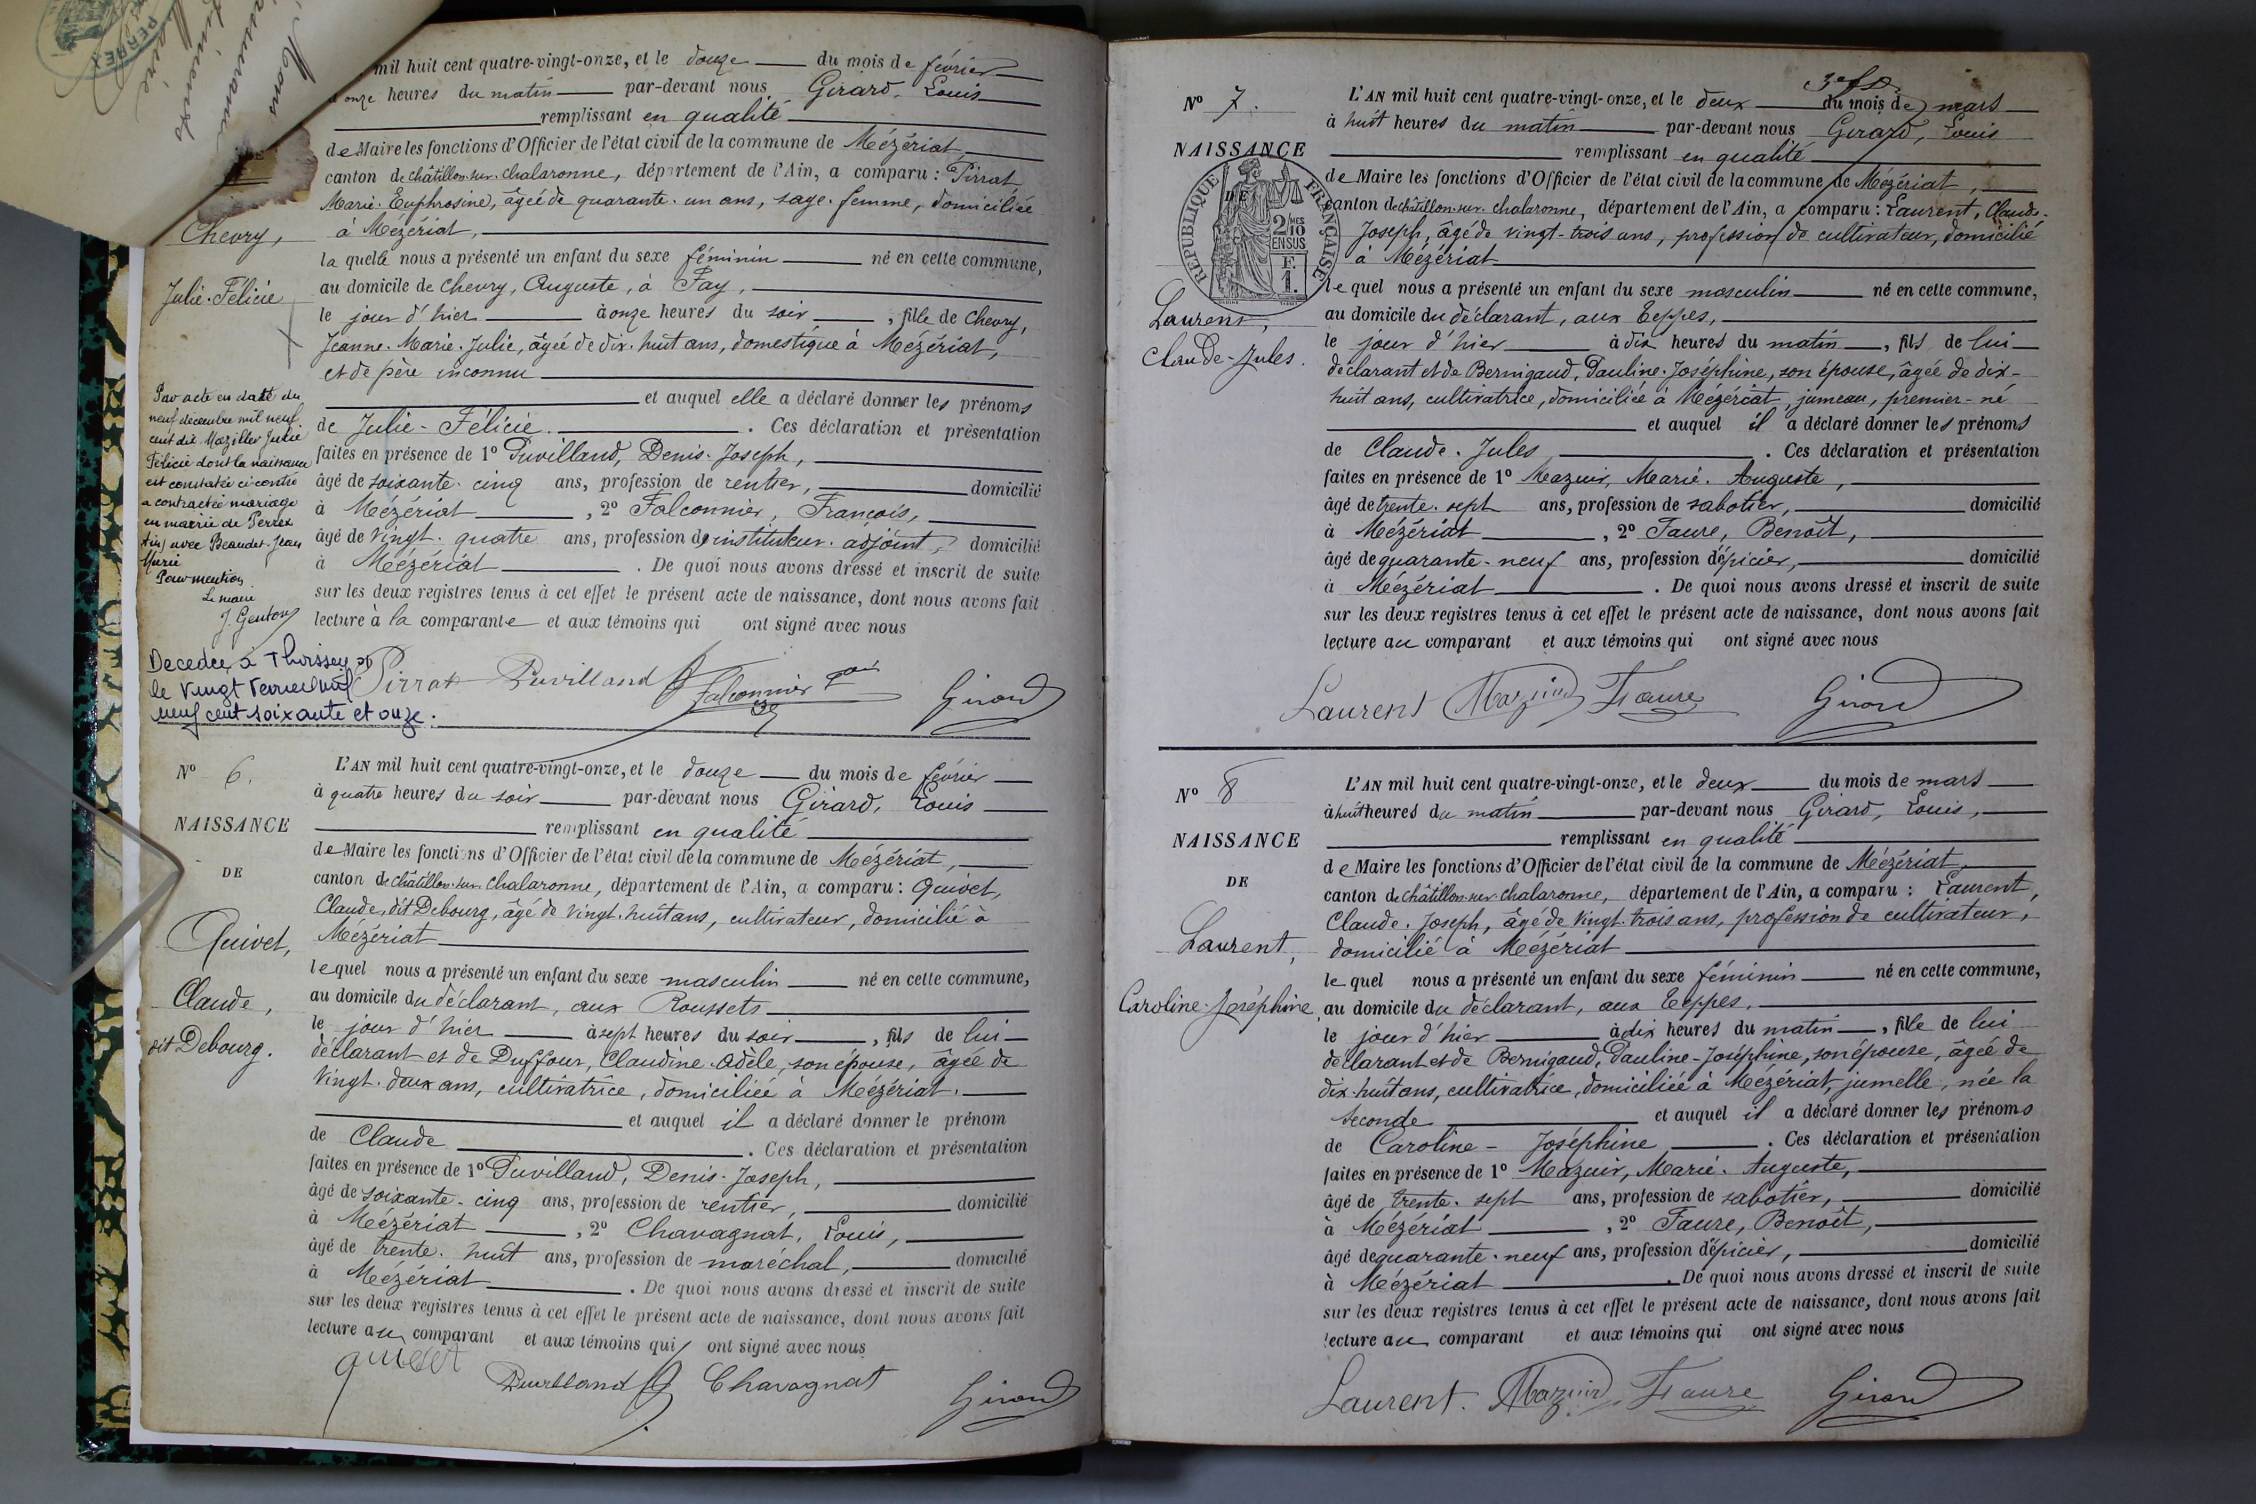 PERREX
mil huit cent quatre-vingt-onze, et le douze du mois de février
onze heures du matin par-devant nous Girard, Louis
remplissant en qualité
de Maire les fonctions d'Officier de l'état civil de la commune de Mézériat,
canton de Châtillon-sur-Chalaronne, département de l'Ain, a comparu : Pirrat,
Marie-Euphrosine, âgée de quarante-un ans, sage-femme, domiciliée
à Mézériat,
la quelle nous a présenté un enfant du sexe féminin né en cette commune,
au domicile de Chevry, Auguste, à Fay,
le jour d'hier à onze heures du soir, fille de Chevry,
Jeanne-Marie-Julie, âgée de dix-huit ans, domestique à Mézériat,
et de père inconnu
et auquel elle a déclaré donner les prénoms
de Julie-Félicie. Ces déclaration et présentation
faites en présence de 1º Puvilland, Denis-Joseph,
âgé de soixante-cinq ans, profession de rentier, domicilié
à Mézériat, 2º Falconnier, François,
âgé de vingt-quatre ans, profession de instituteur-adjoint, domicilié
à Mézériat. De quoi nous avons dressé et inscrit de suite
sur les deux registres tenus à cet effet le présent acte de naissance, dont nous avons fait
lecture à la comparante et aux témoins qui ont signé avec nous
Pirrat Puvilland Falconnier Girard
Chevry,
Julie-Félicie
Par acte en date du
neuf décembre mil neuf
cent dix Maziller Julie
Félicie dont la naissance
est constatée ci-contre
a contractée mariage
en mairie de Perrex
(Ain) avec Beaudet Jean
Marie
Pour mention
Le maire
J. Genton
Decedee à Thoissey
le vingt
neuf cent soixante et onze.
Nº 6.
NAISSANCE
DE
Quivet,
Claude,
dit Debourg.
L'AN mil huit cent quatre-vingt-onze, et le douze du mois de février
à quatre heures du soir par-devant nous Girard, Louis
remplissant en qualité
de Maire les fonctions d'Officier de l'état civil de la commune de Mézériat,
canton de Châtillon-sur-Chalaronne, département de l'Ain, a comparu : Quivet,
Claude, dit Debourg, âgé de vingt-huit ans, cultivateur, domicilié à
Mézériat
le quel nous a présenté un enfant du sexe masculin né en cette commune,
au domicile du déclarant, aux Roussets
le jour d'hier à sept heures du soir, fils de lui
déclarant et de Duffour, Claudine-Adèle, son épouse, âgée de
vingt-deux ans, cultivatrice, domiciliée à Mézériat.
et auquel il a déclaré donner le prénom
de Claude. Ces déclaration et présentation
faites en présence de 1º Puvilland, Denis-Joseph,
âgé de soixante-cinq ans, profession de rentier, domicilié
à Mézériat, 2º Chavagnat, Louis,
âgé de trente-huit ans, profession de maréchal, domicilié
à Mézériat. De quoi nous avons dressé et inscrit de suite
sur les deux registres tenus à cet effet le présent acte de naissance, dont nous avons fait
lecture au comparant et aux témoins qui ont signé avec nous
quivet Puvilland Chavagnat Girard
Nº 7.
NAISSANCE
DE
RÉPUBLIQUE FRANÇAISE
2/10 MES
EN SUS
F.
1.
Laurent,
Claude-Jules.
L'AN mil huit cent quatre-vingt-onze, et le deux du mois de mars
à huit heures du matin par-devant nous Girard, Louis
remplissant en qualité
de Maire les fonctions d'Officier de l'état civil de la commune de Mézériat,
canton de Châtillon-sur-Chalaronne, département de l'Ain, a comparu : Laurent, Claude-
Joseph, âgé de vingt-trois ans, profession de cultivateur, domicilié
à Mézériat
le quel nous a présenté un enfant du sexe masculin né en cette commune,
au domicile du déclarant, aux Teppes,
le jour d'hier à dix heures du matin, fils de lui
déclarant et de Bernigaud, Pauline-Joséphine, son épouse, âgée de dix-
huit ans, cultivatrice, domiciliée à Mézériat, jumeau, premier-né
et auquel il a déclaré donner les prénoms
de Claude-Jules. Ces déclaration et présentation
faites en présence de 1º Mazuir, Marie-Auguste,
âgé de trente-sept ans, profession de sabotier, domicilié
à Mézériat, 2º Faure, Benoît,
âgé de quarante-neuf ans, profession d'épicier, domicilié
à Mézériat. De quoi nous avons dressé et inscrit de suite
sur les deux registres tenus à cet effet le présent acte de naissance, dont nous avons fait
lecture au comparant et aux témoins qui ont signé avec nous
Laurent Mazuir Faure Girard
Nº 8
NAISSANCE
DE
Laurent,
Caroline-Joséphine
L'AN mil huit cent quatre-vingt-onze, et le deux du mois de mars
à huit heures du matin par-devant nous Girard, Louis,
remplissant en qualité
de Maire les fonctions d'Officier de l'état civil de la commune de Mézériat,
canton de Châtillon-sur-Chalaronne, département de l'Ain, a comparu : Laurent,
Claude-Joseph, âgé de vingt-trois ans, profession de cultivateur,
domicilié à Mézériat
le quel nous a présenté un enfant du sexe féminin né en cette commune,
au domicile du déclarant, aux Teppes,
le jour d'hier à dix heures du matin, fille de lui
déclarant et de Bernigaud, Pauline-Joséphine, son épouse, âgée de
dix-huit ans, cultivatrice, domiciliée à Mézériat, jumelle, née la
seconde et auquel il a déclaré donner les prénoms
de Caroline-Joséphine. Ces déclaration et présentation
faites en présence de 1º Mazuir, Marie-Auguste,
âgé de trente-sept ans, profession de sabotier, domicilié
à Mézériat, 2º Faure, Benoît,
âgé de quarante-neuf ans, profession d'épicier, domicilié
à Mézériat. De quoi nous avons dressé et inscrit de suite
sur les deux registres tenus à cet effet le présent acte de naissance, dont nous avons fait
lecture au comparant et aux témoins qui ont signé avec nous
Laurent Mazuir Faure Girard